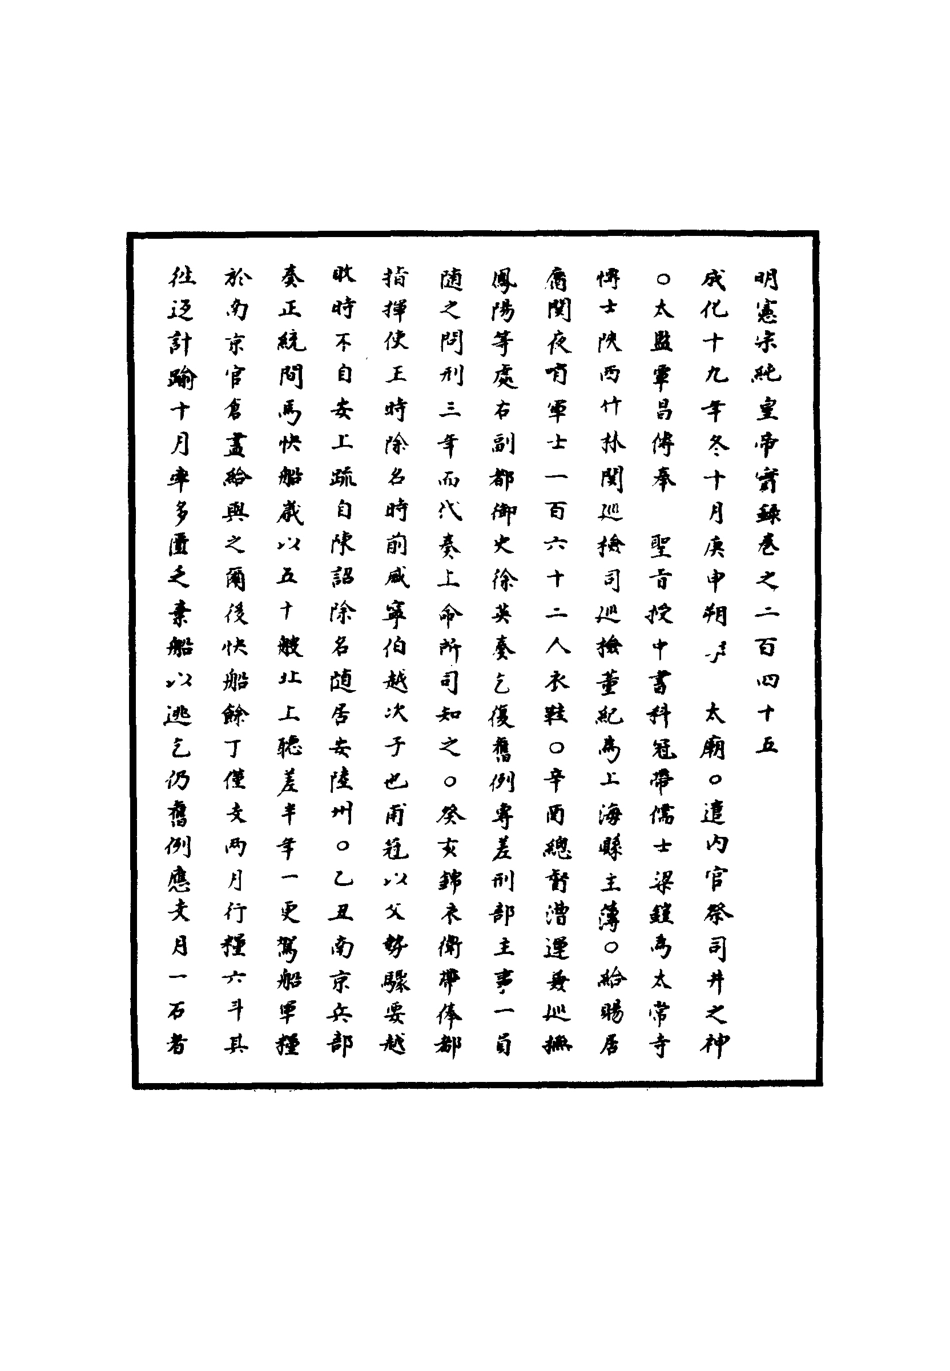 明憲宗純皇帝實錄卷之二百四十五
成化十九年冬十月庚申朔享　太廟○遣内官祭司井之神
○太監覃昌傳奉　聖旨授中書科冠帶儒士梁鎧為太常寺
博士陝西竹林関巡檢司巡檢董紀為上海縣主薄○給賜居
庸関夜哨軍士一百六十二人衣鞋○辛酉總督漕運兼巡撫
鳳陽等處右副都御史徐英奏乞復舊例專差刑部主事一員
随之問刑三年而代奏上命所司知之○癸亥錦衣衛帶俸都
指揮使王時除名時前威寧伯越次子也甫冠以父勢驟要越
敗時不自安上疏自陳詔除名随居安陸州○乙丑南京兵部
奏正統間馬快船歲以五十艘北上聽差半年一更駕船軍糧
於南京官倉盡給與之爾後快船餘丁僅支兩月行糧六斗其
往返計踰十月率多匱乏棄船以逃乞仍舊例應支月一石者